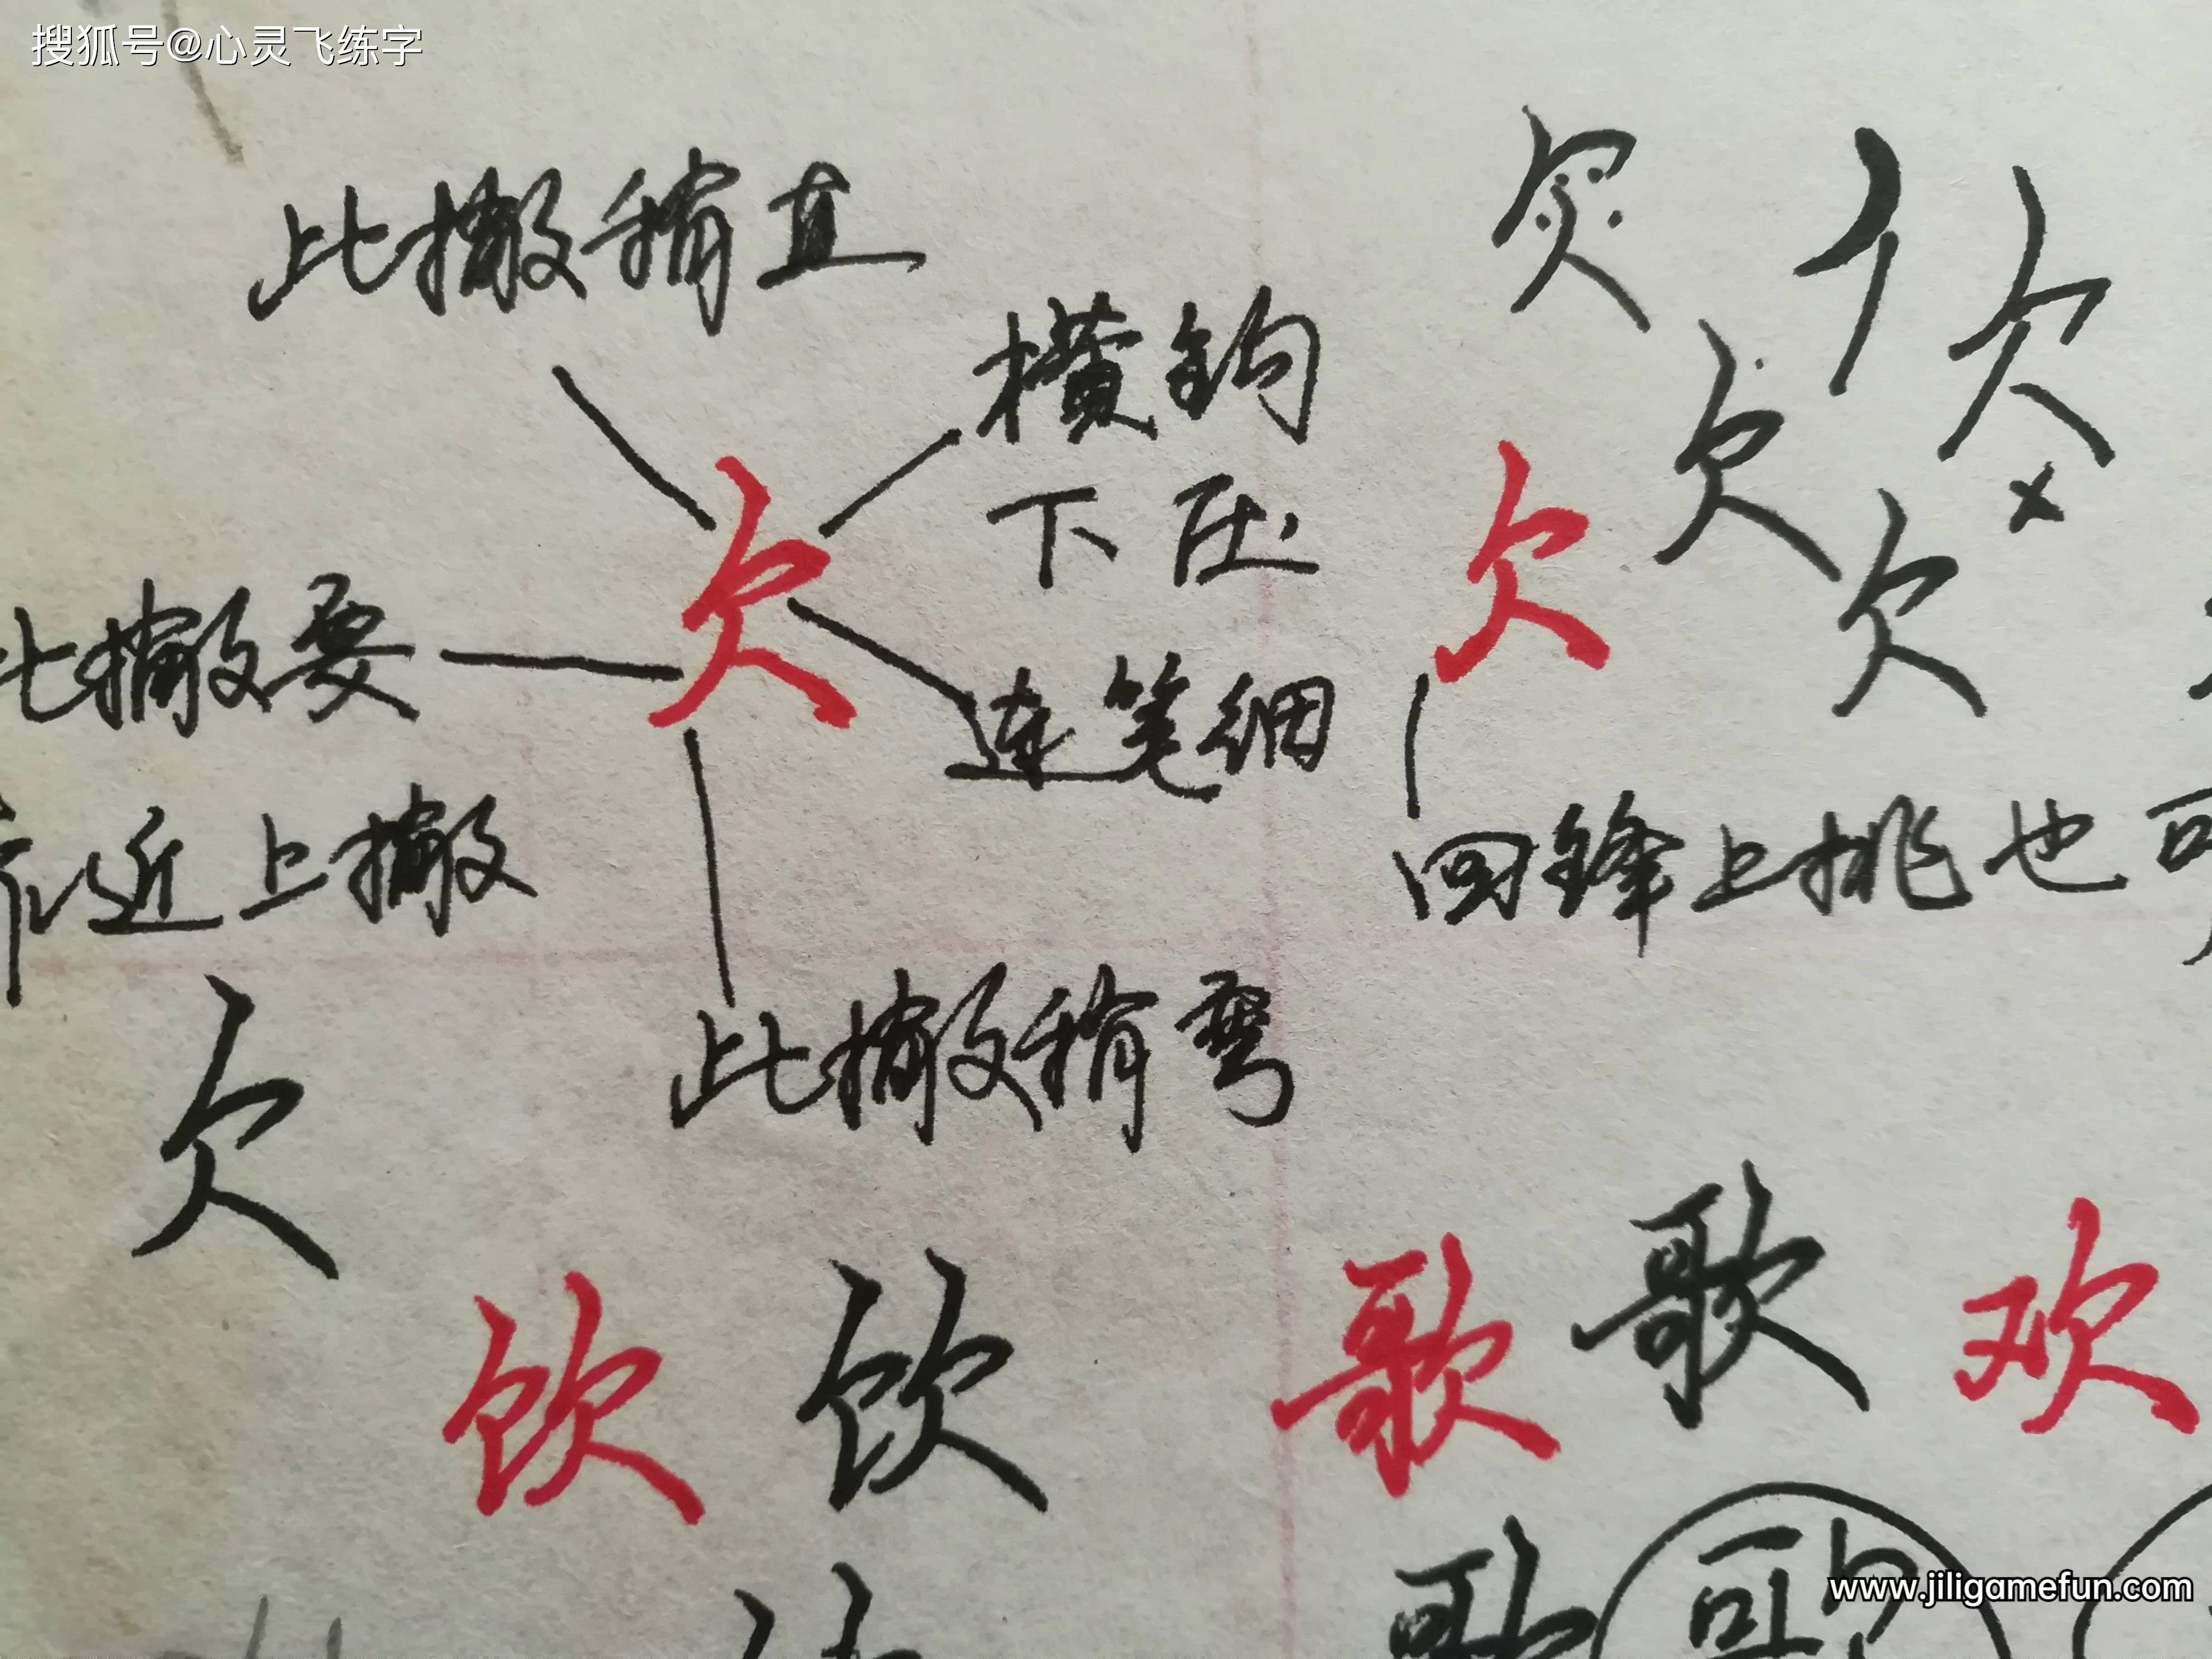 搜狐号@心灵飞练字
此撇稍直
横钩
下压
欠
欠
欠
欠
欠
欠
此撇要
连笔细
靠近上撇
回锋上挑也可
此撇稍弯
欠
饮 饮
歌 歌 欢
歌
www.jiligamefun.com